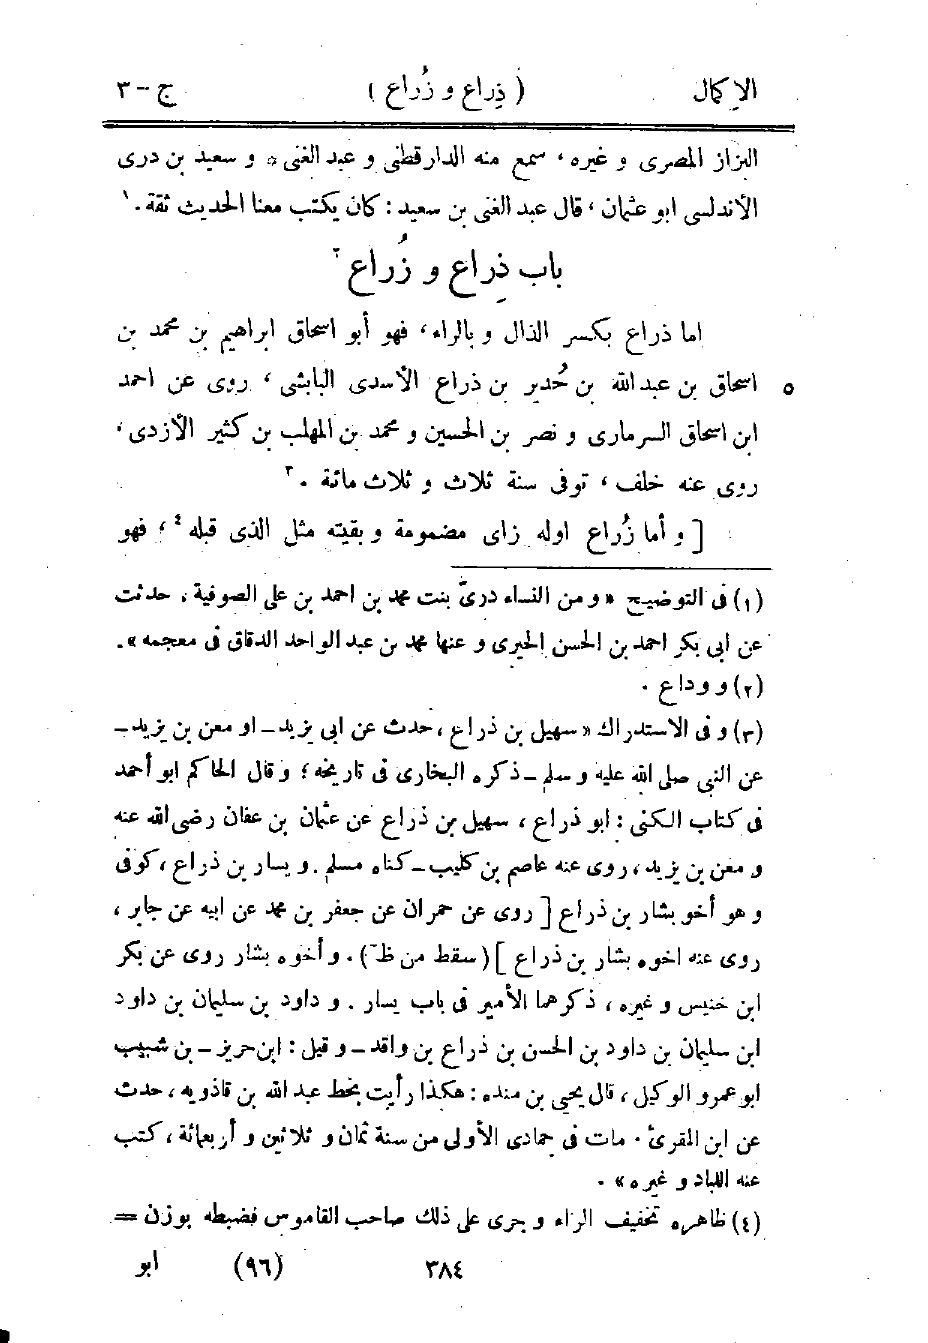 الإكمال ( ذِراع و زُراع ) ج - ٣
البزاز المصرى و غيره، سمع منه الدارقطنى و عبد الغنى ٥ و سعيد بن درى
الأندلسى ابو عثمان، قال عبد الغنى بن سعيد : كان يكتب معنا الحديث ثقة.١
باب ذِراع و زُراع٢
اما ذراع بكسر الذال و بالراء، فهو أبو اسحاق ابراهيم بن محمد بن
اسحاق بن عبد الله بن حُدير بن ذراع الأسدى البابشى، روى عن احمد ٥
ابن اسحاق السرمارى و نصر بن الحسين و محمد بن المهلب بن كثير الأزدى،
روى عنه خلف، توفى سنة ثلاث و ثلاث مائة .٣
[ و أما زُراع اوله زاى مضمومة و بقيته مثل الذى قبله٤، فهو
(١) فى التوضيح « و من النساء درىّ بنت محمد بن احمد بن على الصوفية، حدثت
عن ابى بكر احمد بن الحسن الحيرى و عنها محمد بن عبد الواحد الدقاق فى معجمه ».
(٢) و وداع .
(٣) و فى الاستدراك « سهيل بن ذراع، حدث عن ابى يزيد - او معن بن يزيد -
عن النبى صلى الله عليه و سلم - ذكره البخارى فى تاريخه ؛ و قال الحاكم ابو أحمد
فى كتاب الكنى : ابو ذراع، سهيل بن ذراع عن عثمان بن عفان رضى الله عنه
و معن بن يزيد، روى عنه عاصم بن كليب - كناه مسلم . و يسار بن ذراع، كوفى
و هو أخو بشار بن ذراع [ روى عن حمران عن جعفر بن محمد عن ابيه عن جابر،
روى عنه اخوه بشار بن ذراع ] (سقط من ظ) . و أخوه بشار روى عن بكر
ابن خنيس و غيره، ذكرهما الأمير فى باب يسار . و داود بن سليمان بن داود
ابن سليمان بن داود بن الحسن بن ذراع بن واقد - و قيل : ابن حريز - بن شبيب
ابو عمرو الوكيل، قال يحيى بن منده : هكذا رأيت بخط عبد الله بن قاذويه، حدث
عن ابن المقرئ . مات فى جمادى الأولى من سنة ثمان و ثلاثين و أربعمائة، كتب
عنه اللباد و غيره » .
(٤) ظاهره تخفيف الراء و جرى على ذلك صاحب القاموس فضبطه بوزن =
٣٨٤ (٩٦) ابو